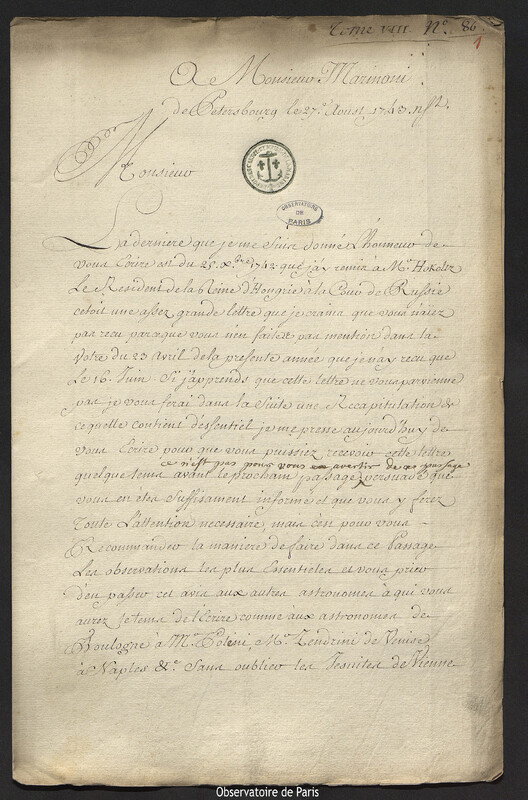 Tome VIII. N° 86
1
A Monsieur Marinoni
de Petersbourg le 27e Aoust 1743. n/st.
Monsieur
OBSERVATOIRE
DE
PARIS
La derniere que je me suis donné L'honneur de
vous Ecrire est du 25. Xbre 1742 que j'ay remise à Mr. Hokoltz
Le Resident de la Reine d'Hongrie à la Cour de Russie
cetoit une assez grande lettre que je crains que vous n'aiez
pas recu parceque vous n'en faites pas mention dans la
Votre du 23 Avril de la presente année que je n'ay recu que
Le 16. Juin. Si j'apprends que cette lettre ne vous parvienne
pas je vous ferai dans la Suite une Recapitulation de
ce quelle contient d'essentiel je me presse aujourd'huy de
vous Ecrire pour que vous puissiez recevoir cette lettre
ce n'est pas pour vous avertir de ce passage
quelque tems avant le prochain passage persuadé que
vous en etes Suffisament informé et que vous y ferez
Toute L'attention necessaire, mais c'est pour vous
Recommander la maniere de faire dans ce Passage
Les observations les plus Essentieles et vous prier
d'en passer cet avis aux autres astronomes à qui vous
aurez le tems de l'Ecrire comme aux astronomes de
Boulogne à Mr. Poleni, Mr. Zendrini de Venise,
à Naples &c. Sans oublier les Jesuites de Vienne
Observatoire de Paris